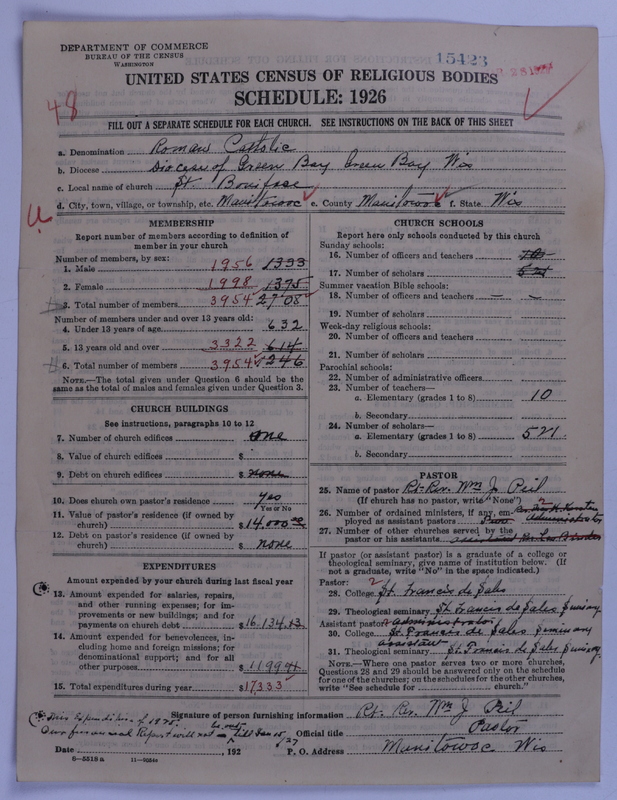 DEPARTMENT OF COMMERCE
BUREAU OF THE CENSUS
WASHINGTON
15423
48
UNITED STATES CENSUS OF RELIGIOUS BODIES
SCHEDULE: 1926
FILL OUT A SEPARATE SCHEDULE FOR EACH CHURCH. SEE INSTRUCTIONS ON THE BACK OF THIS SHEET
a. Denomination Roman Catholic
b. Diocese Diocese of Green Bay Green Bay Wis
c. Local name of church St. Boniface
d. City, town, village, or township, etc. Manitowoc e. County Manitowoc f. State Wis
MEMBERSHIP
Report number of members according to definition of
member in your church
Number of members, by sex:
1. Male 1956 1333
2. Female 1998 1375
3. Total number of members 3954 2708
Number of members under and over 13 years old:
4. Under 13 years of age 632
5. 13 years old and over 3322 614
6. Total number of members 3954 1246
NOTE.—The total given under Question 6 should be the
same as the total of males and females given under Question 3.
CHURCH BUILDINGS
See instructions, paragraphs 10 to 12
7. Number of church edifices one
8. Value of church edifices $
9. Debt on church edifices $ none
10. Does church own pastor's residence yes
Yes or No
11. Value of pastor's residence (if owned by
church) $ 14,000.00
12. Debt on pastor's residence (if owned by
church) $ none
EXPENDITURES
Amount expended by your church during last fiscal year
13. Amount expended for salaries, repairs,
and other running expenses; for im-
provements or new buildings; and for
payments on church debt $ 16.134.13
14. Amount expended for benevolences, in-
cluding home and foreign missions; for
denominational support; and for all
other purposes $
15. Total expenditures during year $ 17333
CHURCH SCHOOLS
Report here only schools conducted by this church
Sunday schools:
16. Number of officers and teachers 10
17. Number of scholars 521
Summer vacation Bible schools:
18. Number of officers and teachers — —
19. Number of scholars
Week-day religious schools:
20. Number of officers and teachers
21. Number of scholars
Parochial schools:
22. Number of administrative officers
23. Number of teachers—
a. Elementary (grades 1 to 8) 10
b. Secondary
24. Number of scholars—
a. Elementary (grades 1 to 8) 521
b. Secondary
PASTOR
25. Name of pastor Rt. Rev. Wm J. Peil
(If church has no pastor, write "None")
26. Number of ordained ministers, if any, em-
ployed as assistant pastors 2 Administrator
27. Number of other churches served by the
pastor or his assistants
If pastor (or assistant pastor) is a graduate of a college or
theological seminary, give name of institution below. (If
not a graduate, write "No" in the space indicated.)
Pastor:
28. College St. Francis de Sales
29. Theological seminary St. Francis de Sales
Assistant pastor: administrator
30. College St. Francis de Sales seminary
assistant
31. Theological seminary St. Francis de Sales
NOTE.—Where one pastor serves two or more churches,
Questions 28 and 29 should be answered only on the schedule
for one of the churches; on the schedules for the other churches,
write "See schedule for church."
Signature of person furnishing information Rt. Rev. Wm J Peil
Our financial Report will not be out till Jan 15/27
Official title Pastor
Date , 192 P. O. Address Manitowoc Wis
6—5518 a 11—9054a